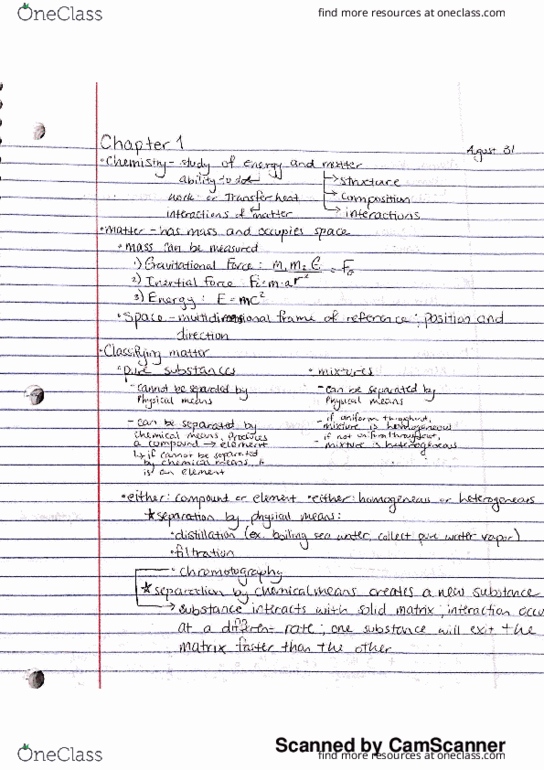 OneClass
find more resources at oneclass.com
Chapter 1
August 31
• Chemistry - study of energy and matter
ability to do
work or transfer heat
interactions of matter
structure
composition
interactions
• matter - has mass and occupies space
• mass can be measured
1) Gravitational Force : m₁ m₂ G = F
2) Inertial Force : Fi = m·a
3) Energy : E = mc²
• Space - multidimensional frame of reference ; position and
direction
• Classifying matter
• pure substances
- cannot be separated by
physical means
- can be separated by
chemical means, produces
a compound → element
↳ if cannot be separated
by chemical means, it
is an element
• mixtures
- can be separated by
physical means
- if uniform throughout,
mixture is homogeneous
- if not uniform throughout,
mixture is heterogeneous
• either: compound or element • either: homogeneous or heterogeneous
★ separation by physical means:
• distillation (ex. boiling sea water, collect pure water vapor)
• filtration
• chromotography
★ separation by chemical means creates a new substance
→ substance interacts with solid matrix ; interaction occu
at a different rate ; one substance will exit the
matrix faster than the other
Scanned by CamScanner
OneClass
find more resources at oneclass.com